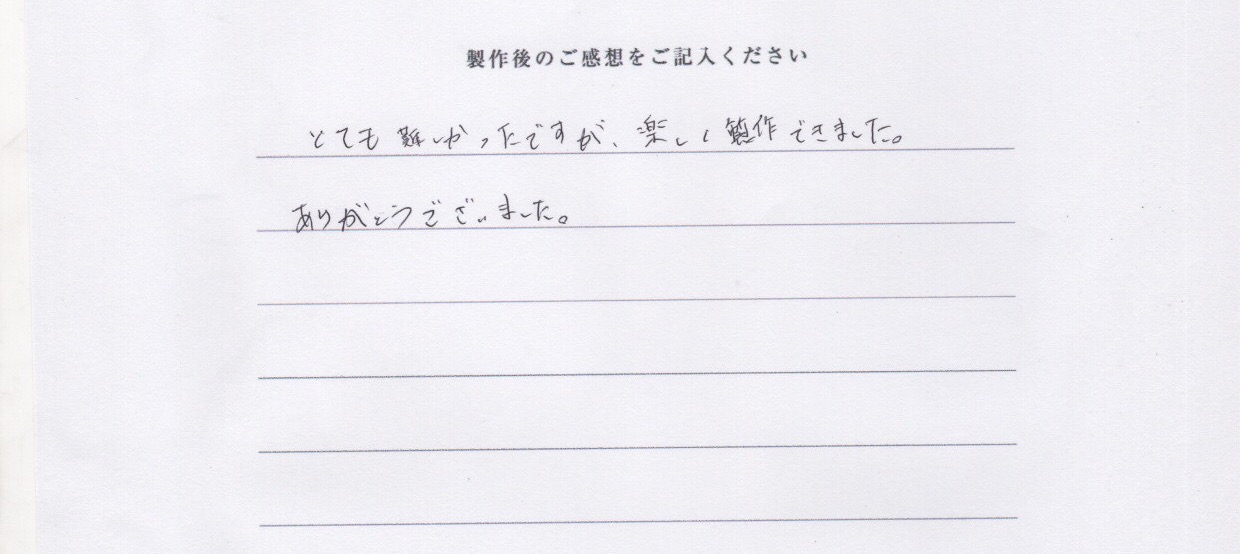 製作後のご感想をご記入ください
とても難しかったですが、楽しく製作できました。
ありがとうございました。